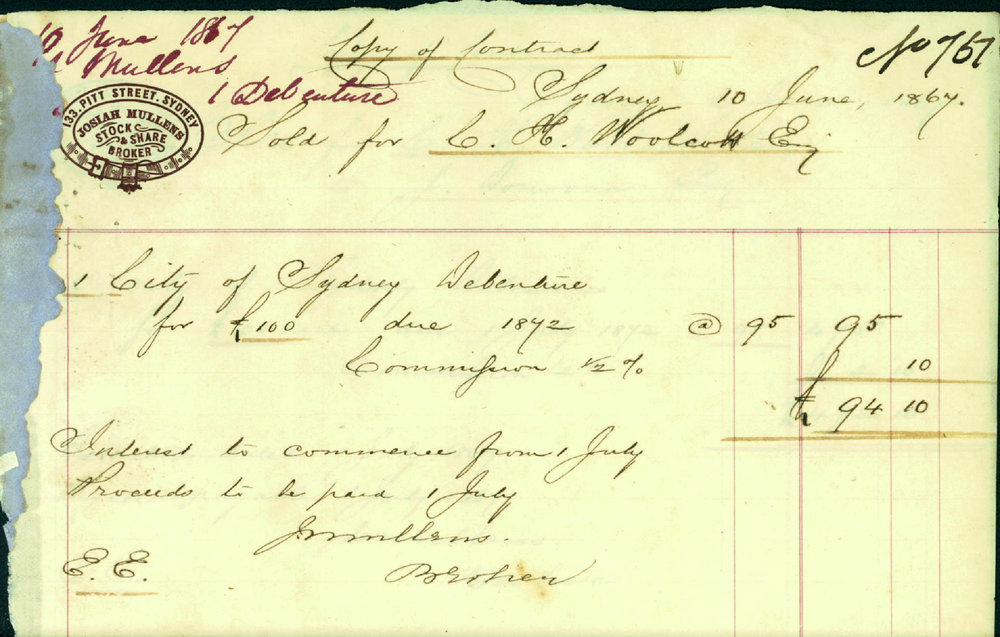 10 June 1867
Mullens
1 Debenture
133. PITT STREET. SYDNEY
JOSIAH MULLENS
STOCK
& SHARE
BROKER
Copy of Contract
No 757
Sydney 10 June, 1867.
Sold for C. H. Woolcott Esq
1 City of Sydney Debenture
for £100 due 1872 @ 95 95
Commission 1/2 % 10
£ 94 10
Interest to commence from 1 July
Proceeds to be paid 1 July
J Mullens.
E. E. Broker